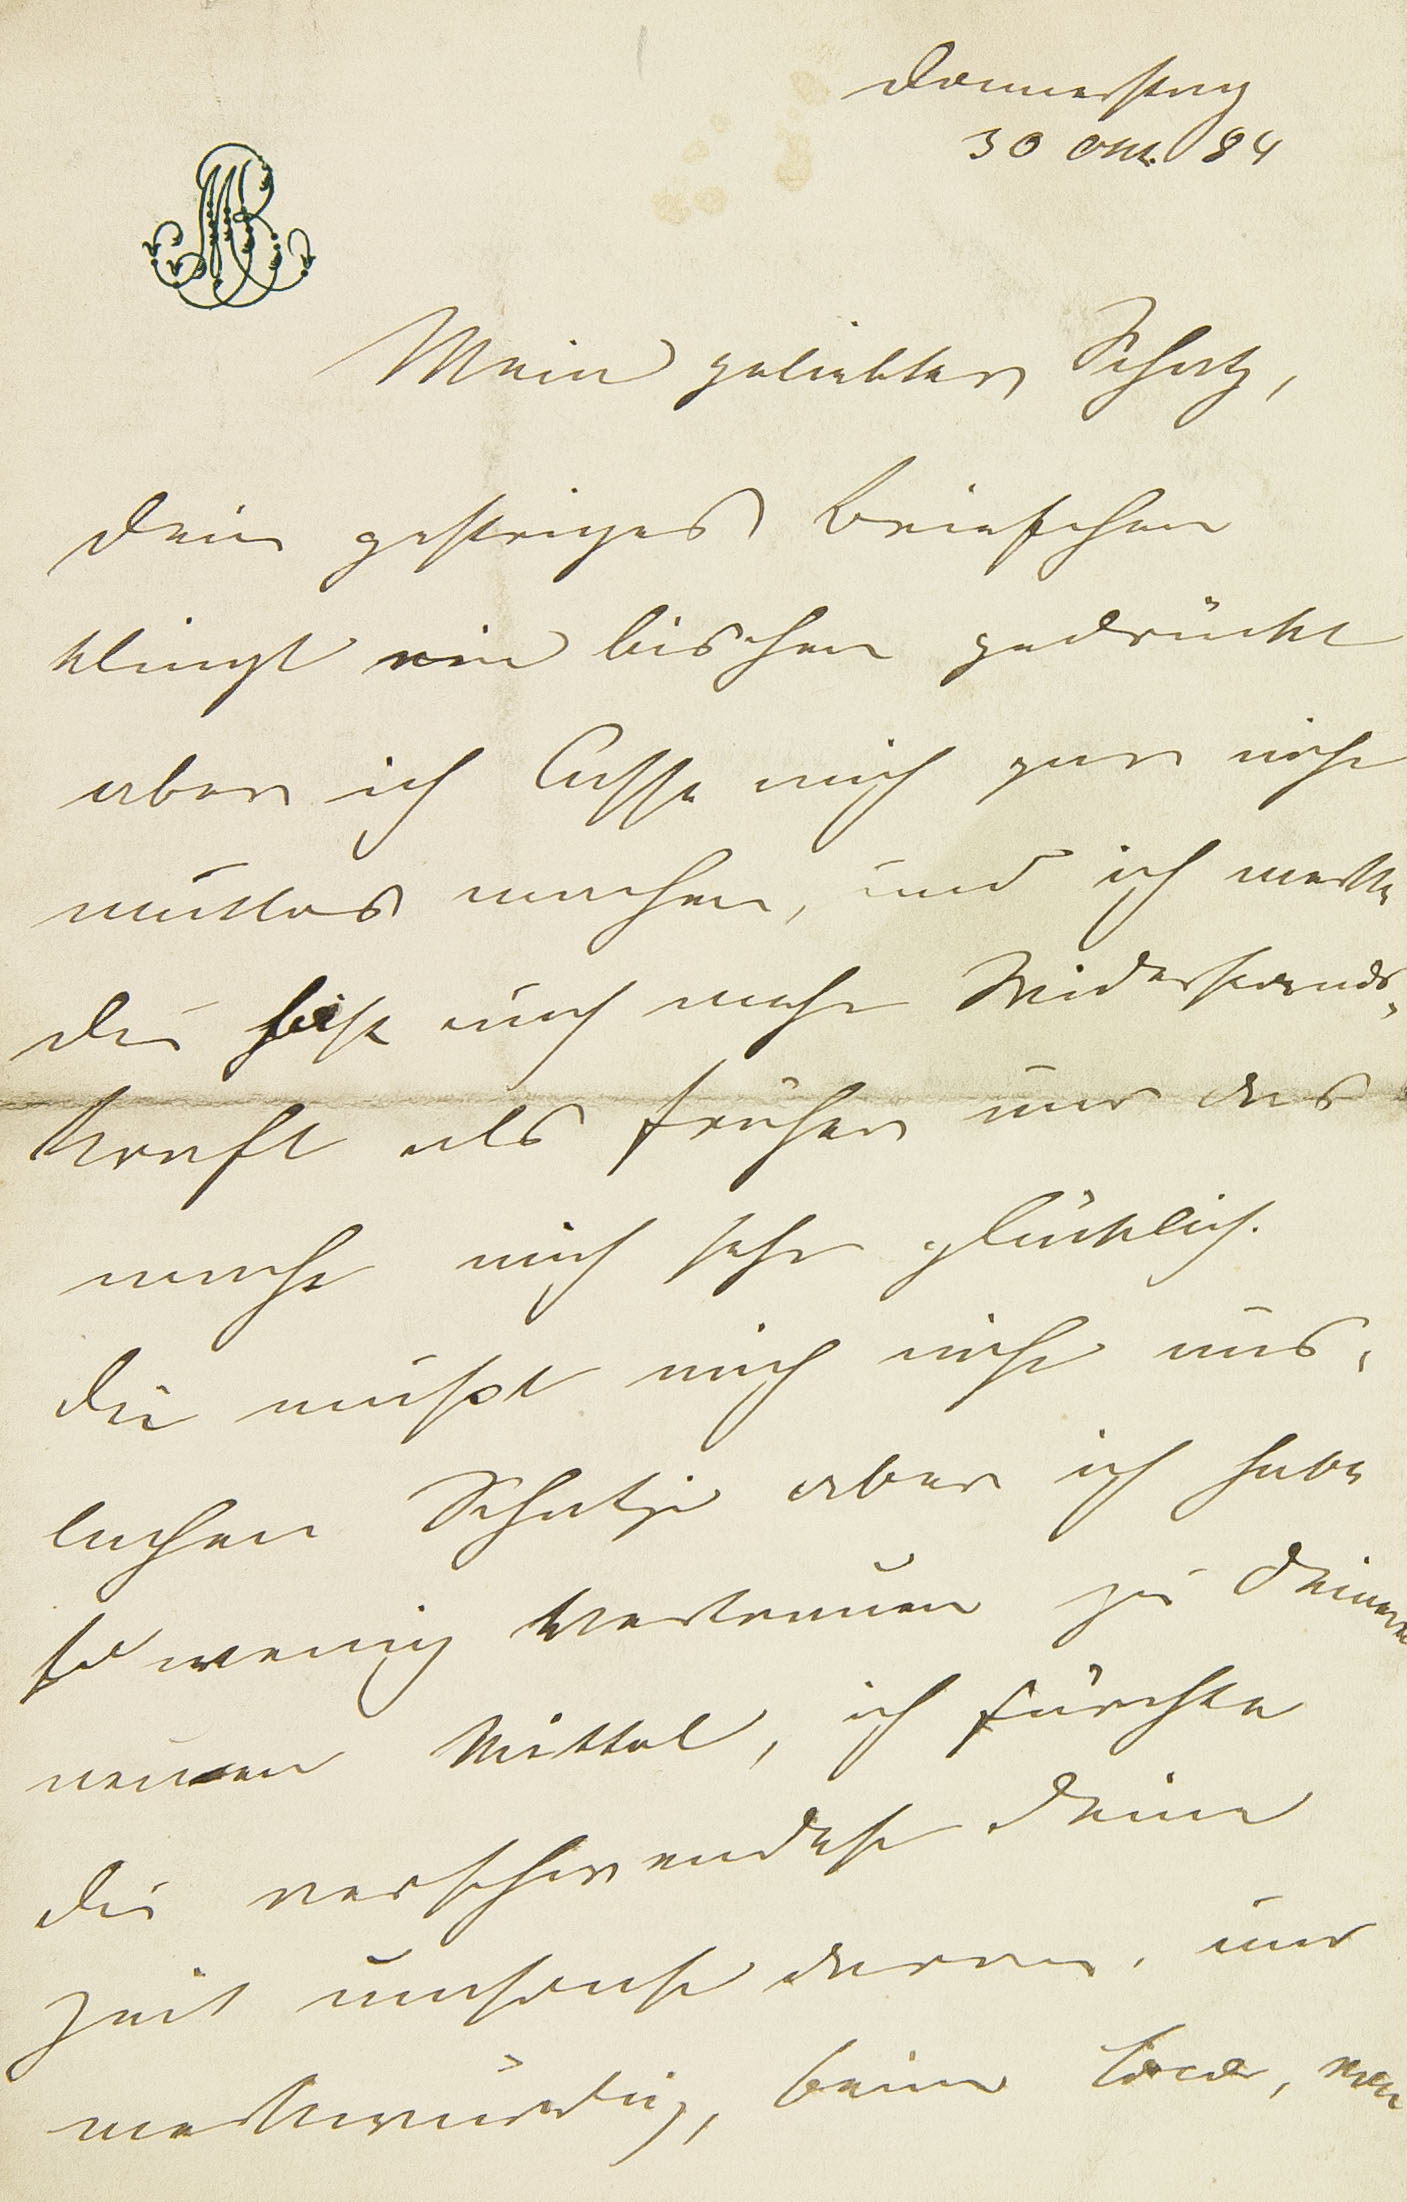 Donnerstag
30 Okt. 84
MB
Mein geliebter Schatz,
Dein gestriges Briefchen
klingt ein bischen gedrückt
aber ich lasse mich gar nicht
mutlos machen, und ich merke
Du bist auch mehr Widerstands-
kraft als früher und das
macht mich sehr glücklich.
Du mußt mich nicht aus-
lachen Schatzi aber ich habe
so wenig Vertrauen zu Deinem
neuen Mittel, ich fürchte
Du verschwendest Deine
Zeit umsonst daran, und
merkwürdig, beim Coca,